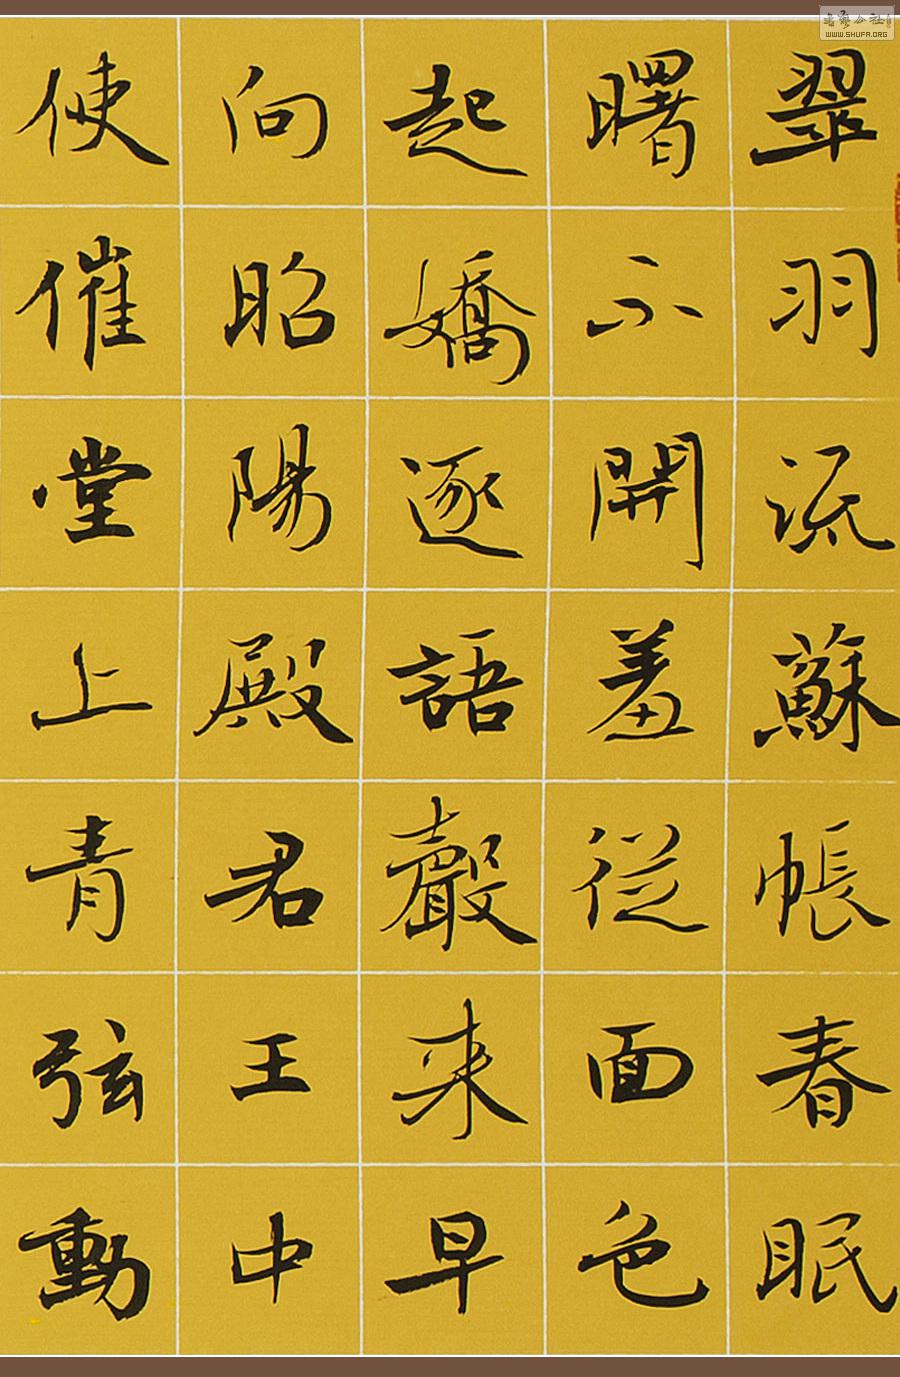 翠羽流蘇帳春眠
曙不開羞從面色
起嬌逐語聲来早
向昭陽殿君王中
使催堂上青弦動
書藝公社
WWW.SHUFA.ORG